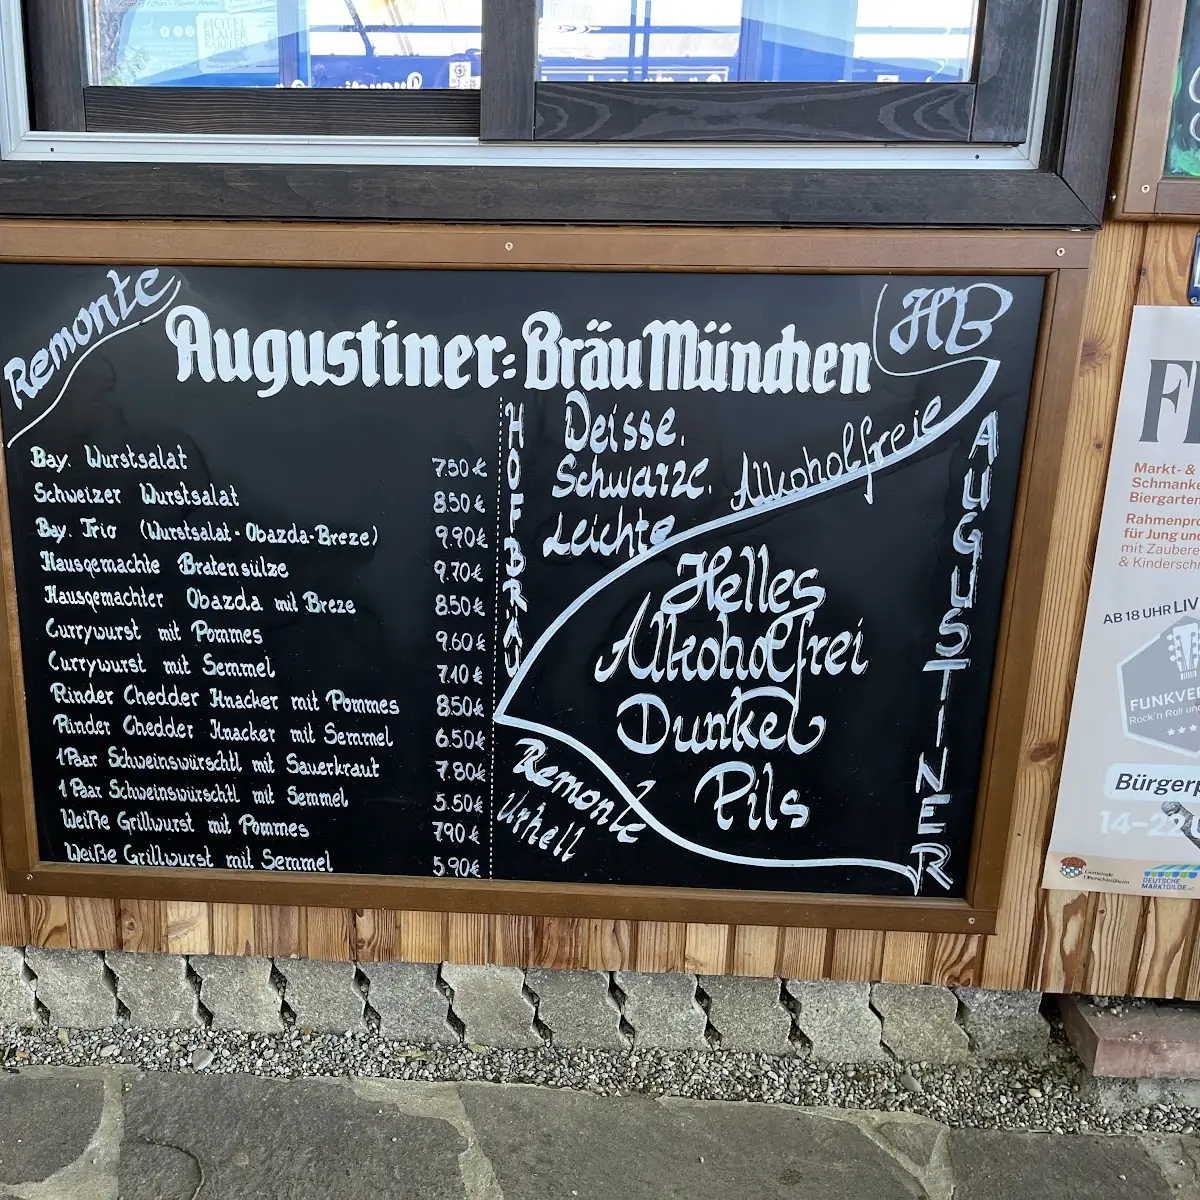 HOTEL
BLAUER
KARPFEN
Remonte
Augustiner=Bräu München
HB
Bay. Wurstsalat 7.50€
Schweizer Wurstsalat 8.50€
Bay. Trio (Wurstsalat-Obazda-Breze) 9.90€
Hausgemachte Bratensülze 9.70€
Hausgemachter Obazda mit Breze 8.50€
Currywurst mit Pommes 9.60€
Currywurst mit Semmel 7.10€
Rinder Chedder Knacker mit Pommes 8.50€
Rinder Chedder Knacker mit Semmel 6.50€
1 Paar Schweinswürschtl mit Sauerkraut 7.80€
1 Paar Schweinswürschtl mit Semmel 5.50€
Weiße Grillwurst mit Pommes 7.90€
Weiße Grillwurst mit Semmel 5.90€
HOFBRÄU
Deisse.
Schwarze.
Leichte
Alkoholfreie
Helles
Alkoholfrei
Dunkel
Pils
AUGUSTINER
Remonte
Urhell
Markt- &
Biergarten
für Jung
& Kinder
AB 18 UHR LIV
FUNKVE
Rock'n Roll
Bürger
14-22
Gemeinde
Oberschleißheim
DEUTSCHE
MARKTGILDE